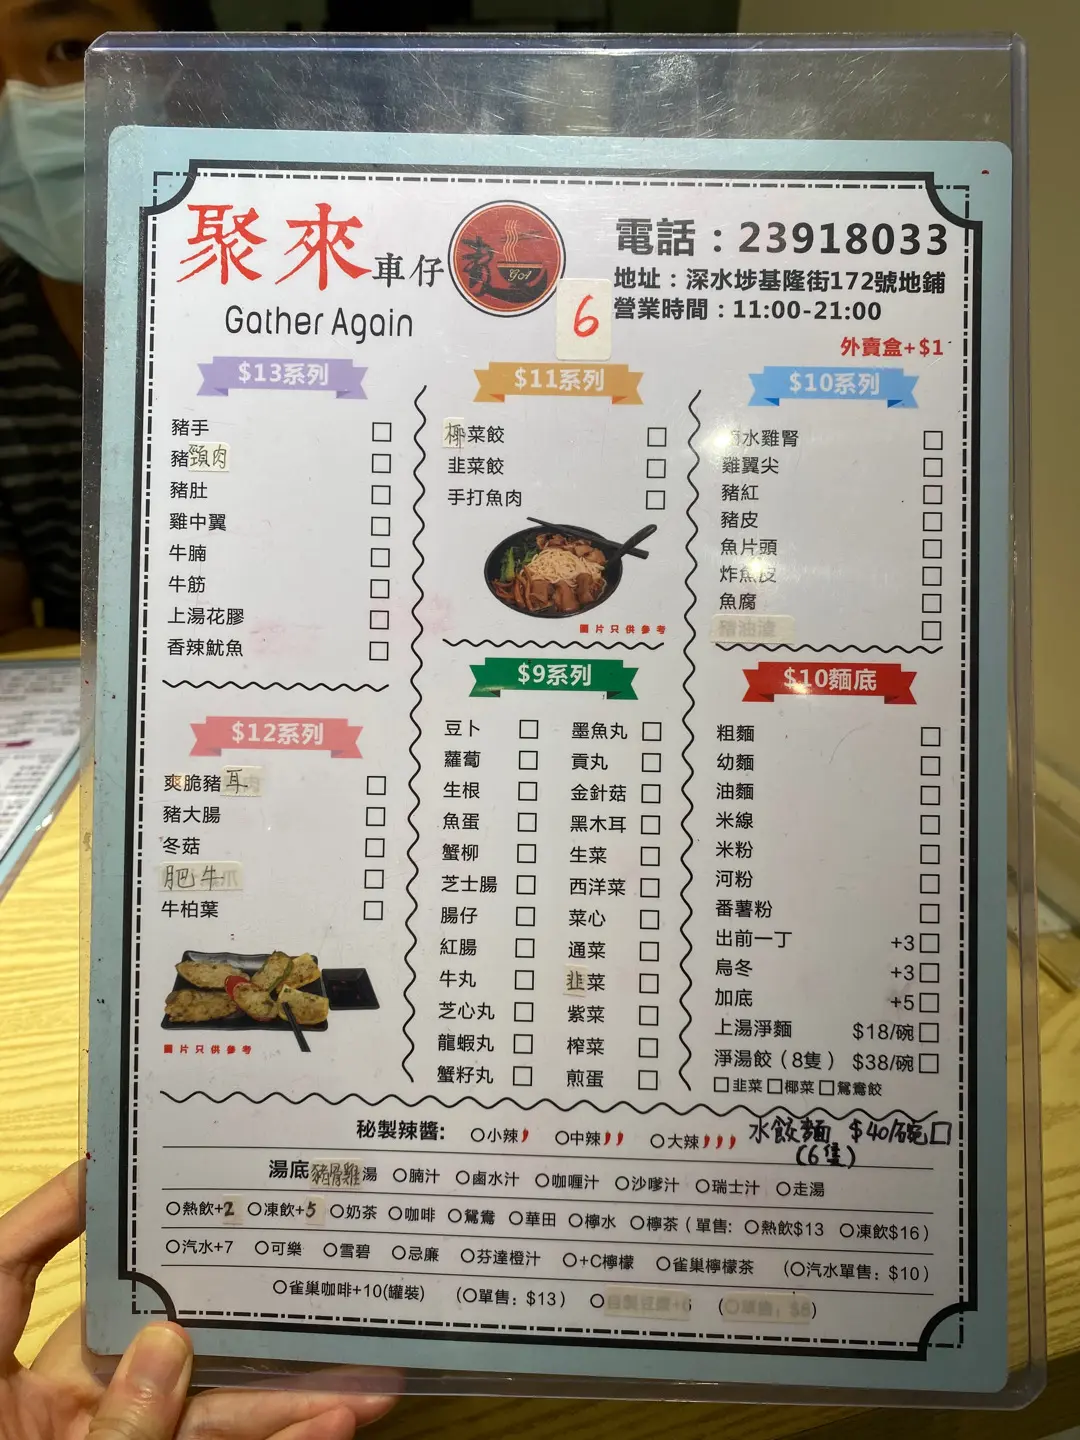 聚來車仔麵
GA
Gather Again
電話：23918033
地址：深水埗基隆街172號地鋪
營業時間：11:00-21:00
6
外賣盒+$1
$13系列
豬手
豬頸肉
豬肚
雞中翼
牛腩
牛筋
上湯花膠
香辣魷魚
$12系列
爽脆豬耳
豬大腸
冬菇
肥牛
牛柏葉
圖片只供參考
$11系列
椰菜餃
韭菜餃
手打魚肉
圖片只供參考
$9系列
豆卜
蘿蔔
生根
魚蛋
蟹柳
芝士腸
腸仔
紅腸
牛丸
芝心丸
龍蝦丸
蟹籽丸
墨魚丸
貢丸
金針菇
黑木耳
生菜
西洋菜
菜心
通菜
韭菜
紫菜
榨菜
煎蛋
$10系列
水雞腎
雞翼尖
豬紅
豬皮
魚片頭
炸魚皮
魚腐
豬油渣
$10麵底
粗麵
幼麵
油麵
米線
米粉
河粉
番薯粉
出前一丁 +3
烏冬 +3
加底 +5
上湯淨麵 $18/碗
淨湯餃（8隻） $38/碗
韭菜 椰菜 鴛鴦餃
水餃麵 $40/碗
(6隻)
秘製辣醬: 小辣 中辣 大辣
湯底 豬骨雞湯 腩汁 鹵水汁 咖喱汁 沙嗲汁 瑞士汁 走湯
熱飲+2 凍飲+5 奶茶 咖啡 鴛鴦 華田 檸水 檸茶（單售: 熱飲$13 凍飲$16）
汽水+7 可樂 雪碧 忌廉 芬達橙汁 +C檸檬 雀巢檸檬茶 （汽水單售：$10）
雀巢咖啡+10(罐裝) （單售：$13）